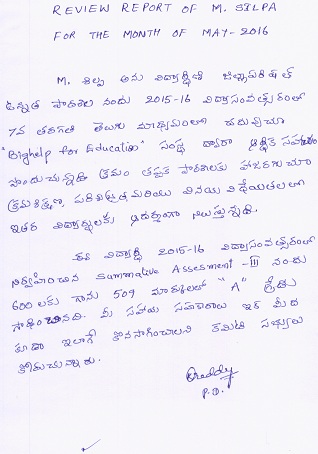 REVIEW REPORT OF M. SILPA
FOR THE MONTH OF MAY-2016
M. శిల్ప అను విద్యార్థిని జిల్లాపరిషత్
ఉన్నత పాఠశాల నందు 2015-16 విద్యాసంవత్సరంలో
7వ తరగతి తెలుగు మాధ్యమంలో చదువుచూ
"Bighelp for Education" సంస్థ ద్వారా ఆర్థిక సహాయం
పొందుచున్నది. క్రమం తప్పక పాఠశాలకు హాజరగుచూ
క్రమశిక్షణ, పరిశుభ్రత మరియు వినయ విధేయతలలో
ఇతర విద్యార్థులకు ఆదర్శంగా నిలుస్తున్నది.
ఈ విద్యార్థి 2015-16 విద్యాసంవత్సరంలో
నిర్వహించిన Summative Assesment-III నందు
600 లకు గాను 509 మార్కులతో "A" గ్రేడు
సాధించినది. మీ సహాయ సహకారాలు ఇక మీద
కూడా ఇలాగే కొనసాగించాలని కమిటి సభ్యులు
కోరుచున్నారు.
P.D.